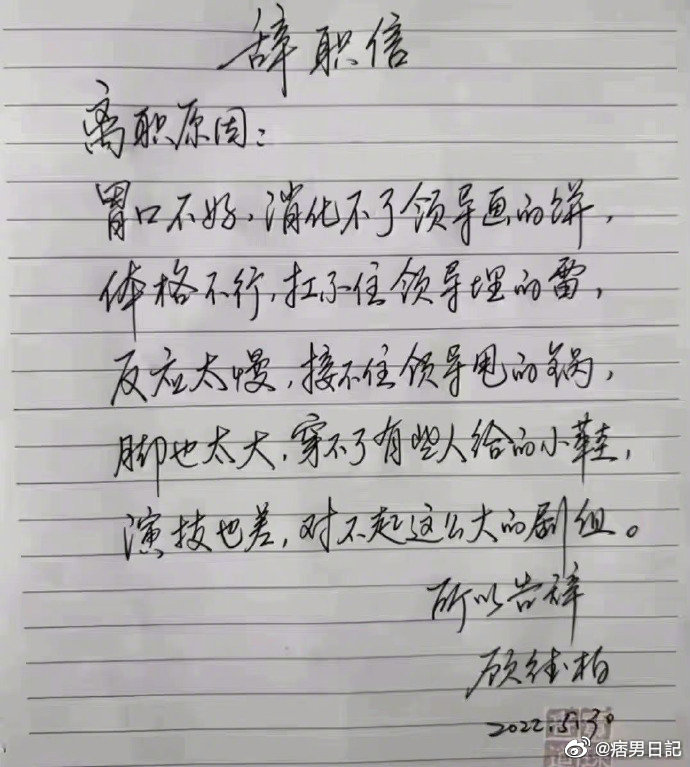 辞职信
离职原因：
胃口不好，消化不了领导画的饼，
体格不行，扛不住领导埋的雷，
反应太慢，接不住领导甩的锅，
脚也太大，穿不了有些人给的小鞋，
演技也差，对不起这么大的剧组。
所以告辞
顾 柏
2022.5.30
@痞男日記